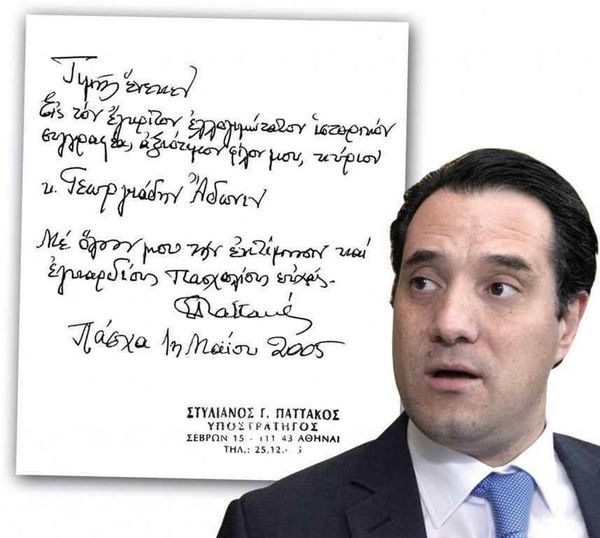 Τιμῆς ἕνεκεν
Εἰς τὸν ἔγκριτον ἐλλογιμώτατον ἱστορικόν
συγγραφέα, ἀξιότιμον φίλον μου, κύριον
κ. Γεωργιάδην Ἄδωνιν
Μέ ὅλην μου τήν ἐκτίμησιν καί
ἐγκαρδίους πασχαλίους εὐχάς.
Πάσχα 1η Μαΐου 2005
ΣΤΥΛΙΑΝΟΣ Γ. ΠΑΤΤΑΚΟΣ
ΥΠΟΣΤΡΑΤΗΓΟΣ
ΣΕΒΡΩΝ 15 - 111 43 ΑΘΗΝΑΙ
ΤΗΛ.: 25.12.